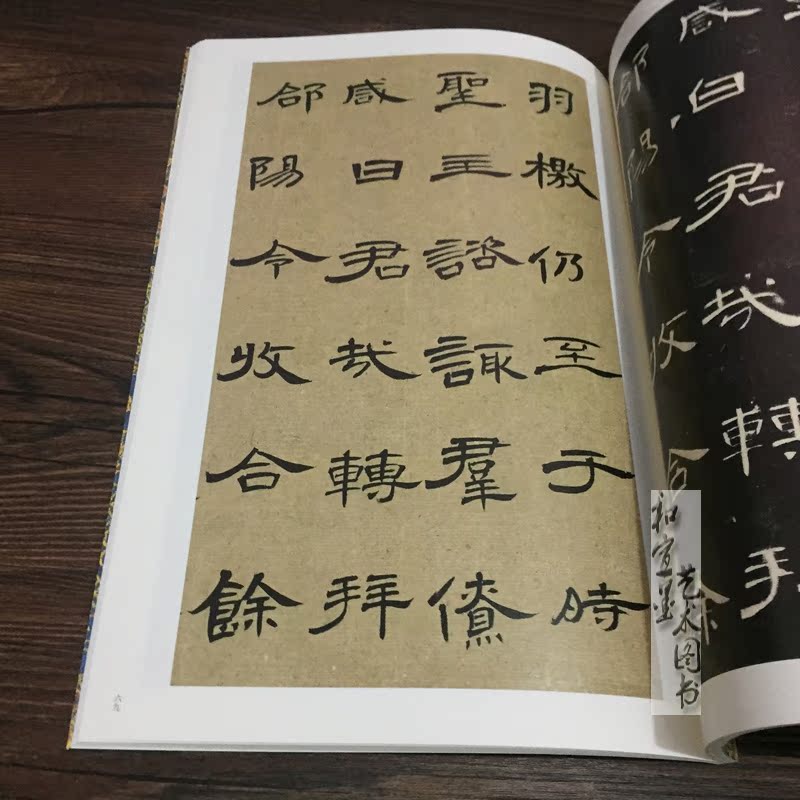 羽檄仍至于時
聖主諮諏羣僚
咸曰君哉轉拜
郃陽令收合餘
六九
咸曰君哉轉拜
郃陽令收合餘
和宣墨
艺术图书